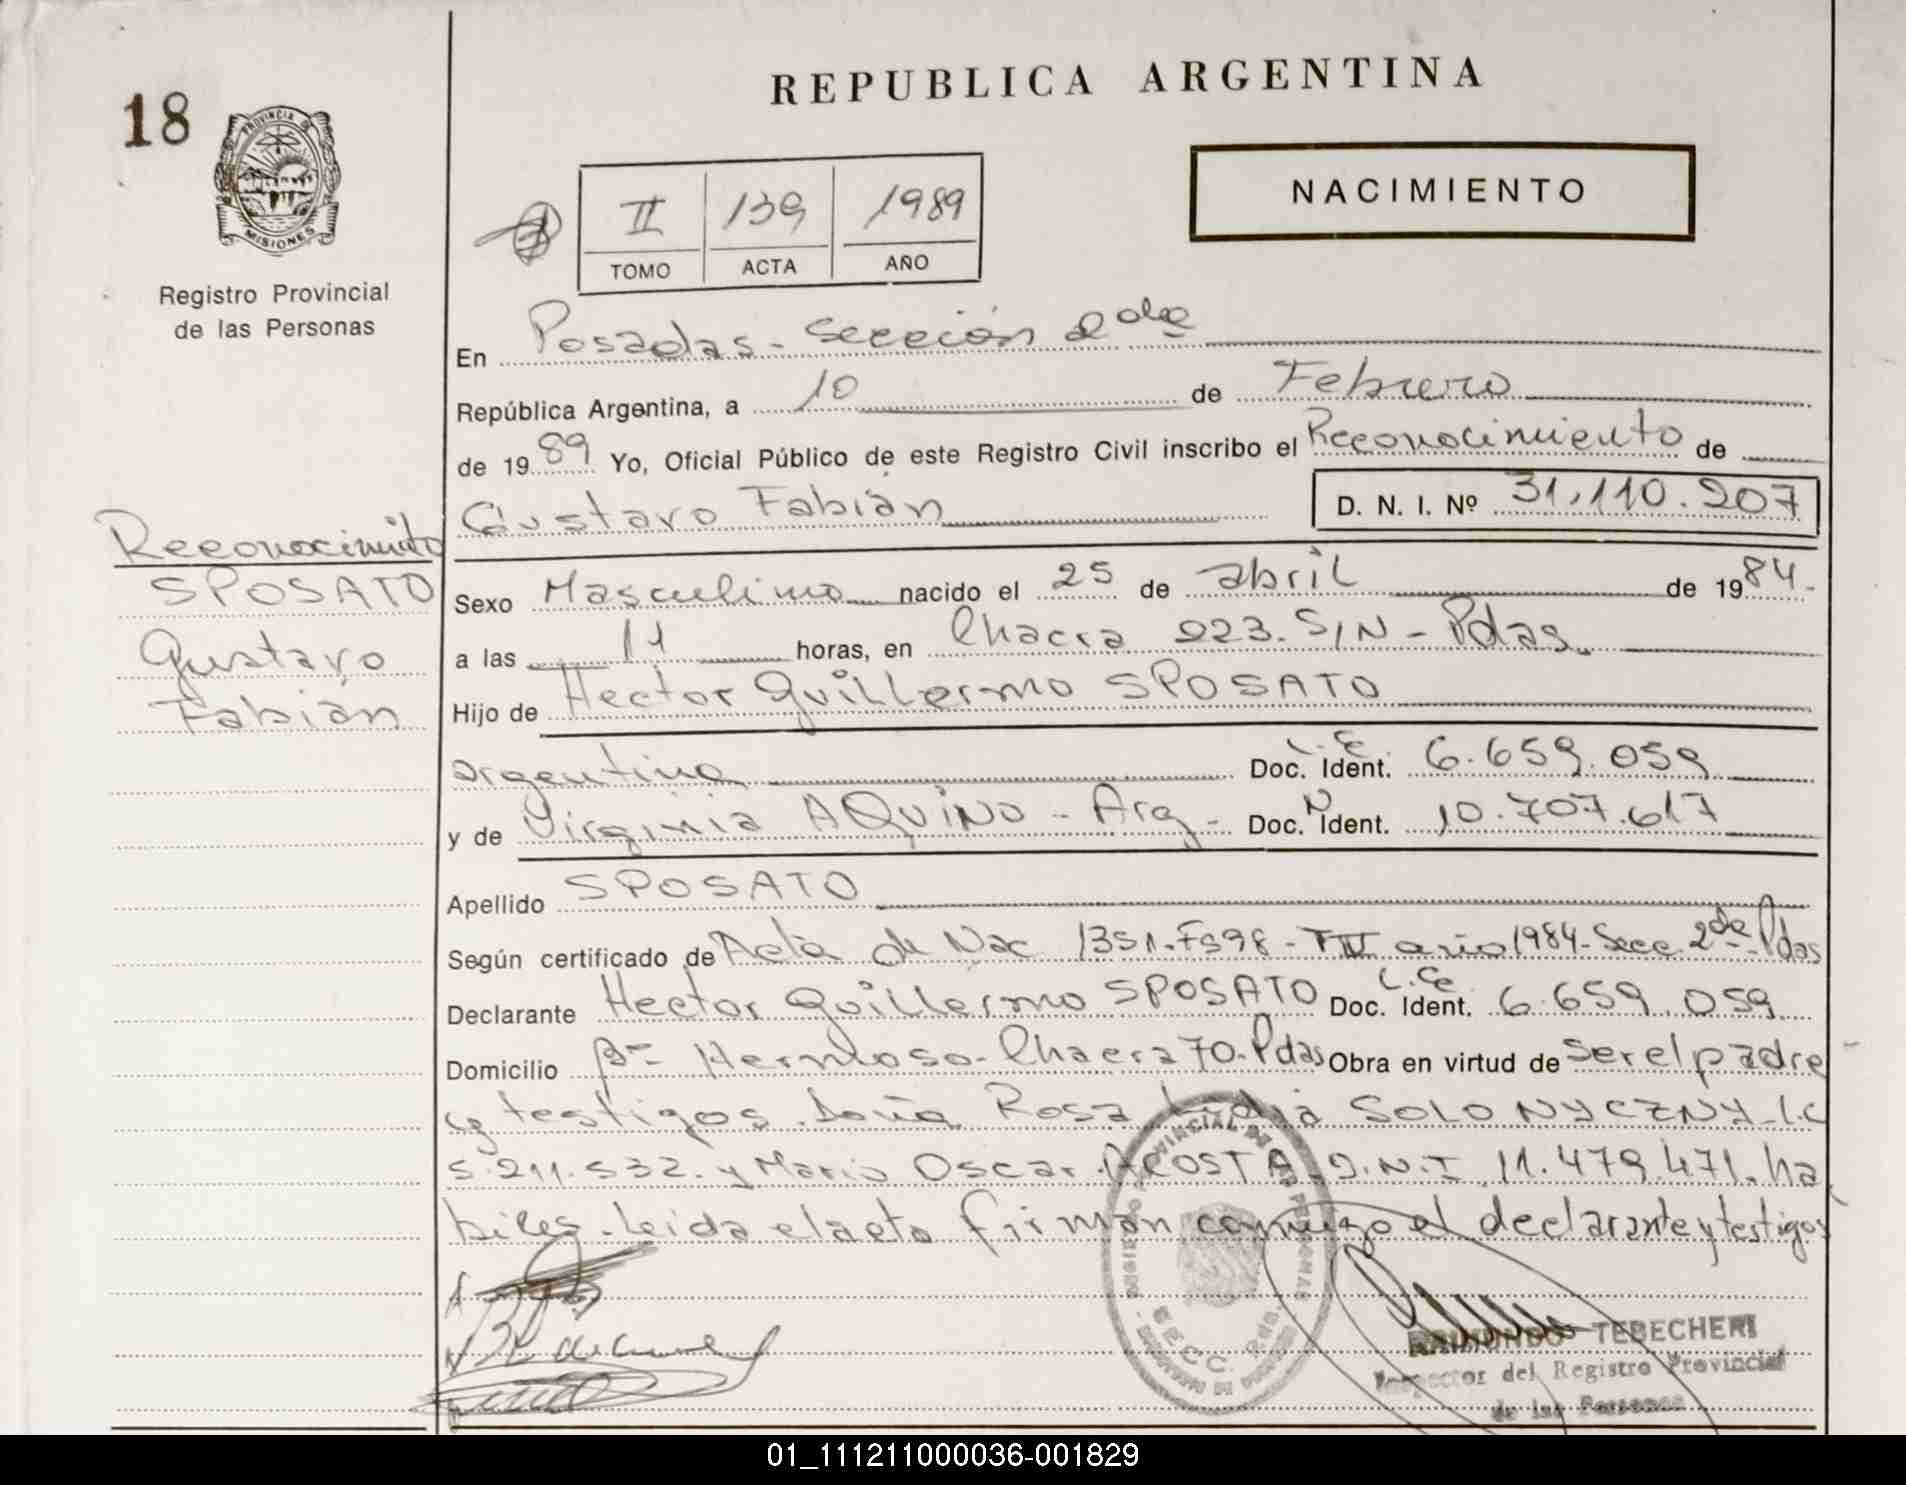 REPUBLICA ARGENTINA
18
PROVINCIA DE
MISIONES
Registro Provincial
de las Personas
NACIMIENTO
II 139 1989
TOMO ACTA AÑO
En Posadas - Sección 2da
República Argentina, a 10 de Febrero
de 1989 Yo, Oficial Público de este Registro Civil inscribo el Reconocimiento de
Gustavo Fabián D. N. I. Nº 31.110.207
Reconocimiento
SPOSATO
Gustavo
Fabián
Sexo Masculino nacido el 25 de abril de 1984.-
a las 11 horas, en Chacra 223. S/N - Pdas.
Hijo de Hector Guillermo SPOSATO
argentino Doc. Ident. L.E. 6.659.059
y de Virginia AQUINO - Arg - Doc. Ident. 10.707.617
Apellido SPOSATO
Según certificado de Acta de Nac 1351-Fs98- año 1984-Secc. 2da Pdas
Declarante Hector Guillermo SPOSATO Doc. Ident. L.E. 6.659.059
Domicilio Bº Hermoso - Chacra 70 - Pdas Obra en virtud de ser el padre
y testigos Doña Rosa Lidia SOLONYCZNY L.C
5.211.532. y Mario Oscar ACOSTA D.N.I 11.479.471. ha
biles. Leida el acta firman conmigo el declarante y testigos
REGISTRO PROVINCIAL DE LAS PERSONAS
RAIMUNDO TEBECHERI
Inspector del Registro Provincial
de las Personas
01_111211000036-001829